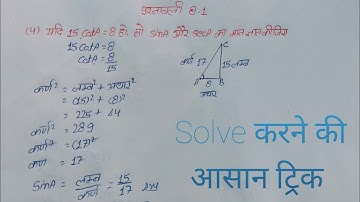 प्रश्नावली 8.1
(4) यदि 15 CotA = 8 हो, तो SinA और SecA का मान ज्ञात कीजिए
15 CotA = 8
CotA = 8/15
कर्ण² = लम्ब² + आधार²
= (15)² + (8)²
= 225 + 64
कर्ण² = 289
कर्ण² = (17)²
कर्ण = 17
SinA = लम्ब/कर्ण = 15/17 Ans
C
कर्ण 17
15 लम्ब
A 8 B
आधार
Solve करने की
आसान ट्रिक